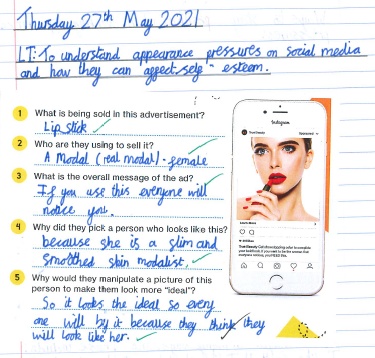 Thursday 27th May 2021
LT: To understand appearance pressures on social media
and how they can affect self-esteem.
1 What is being sold in this advertisement?
Lipstick
2 Who are they using to sell it?
A Modal (real modal) - female
3 What is the overall message of the ad?
If you use this everyone will
notice you.
4 Why did they pick a person who looks like this?
because she is a slim and
smothed skin modalist.
5 Why would they manipulate a picture of this
person to make them look more "ideal"?
So it looks the ideal so every
one will by it because they think they
will look like her.
Instagram